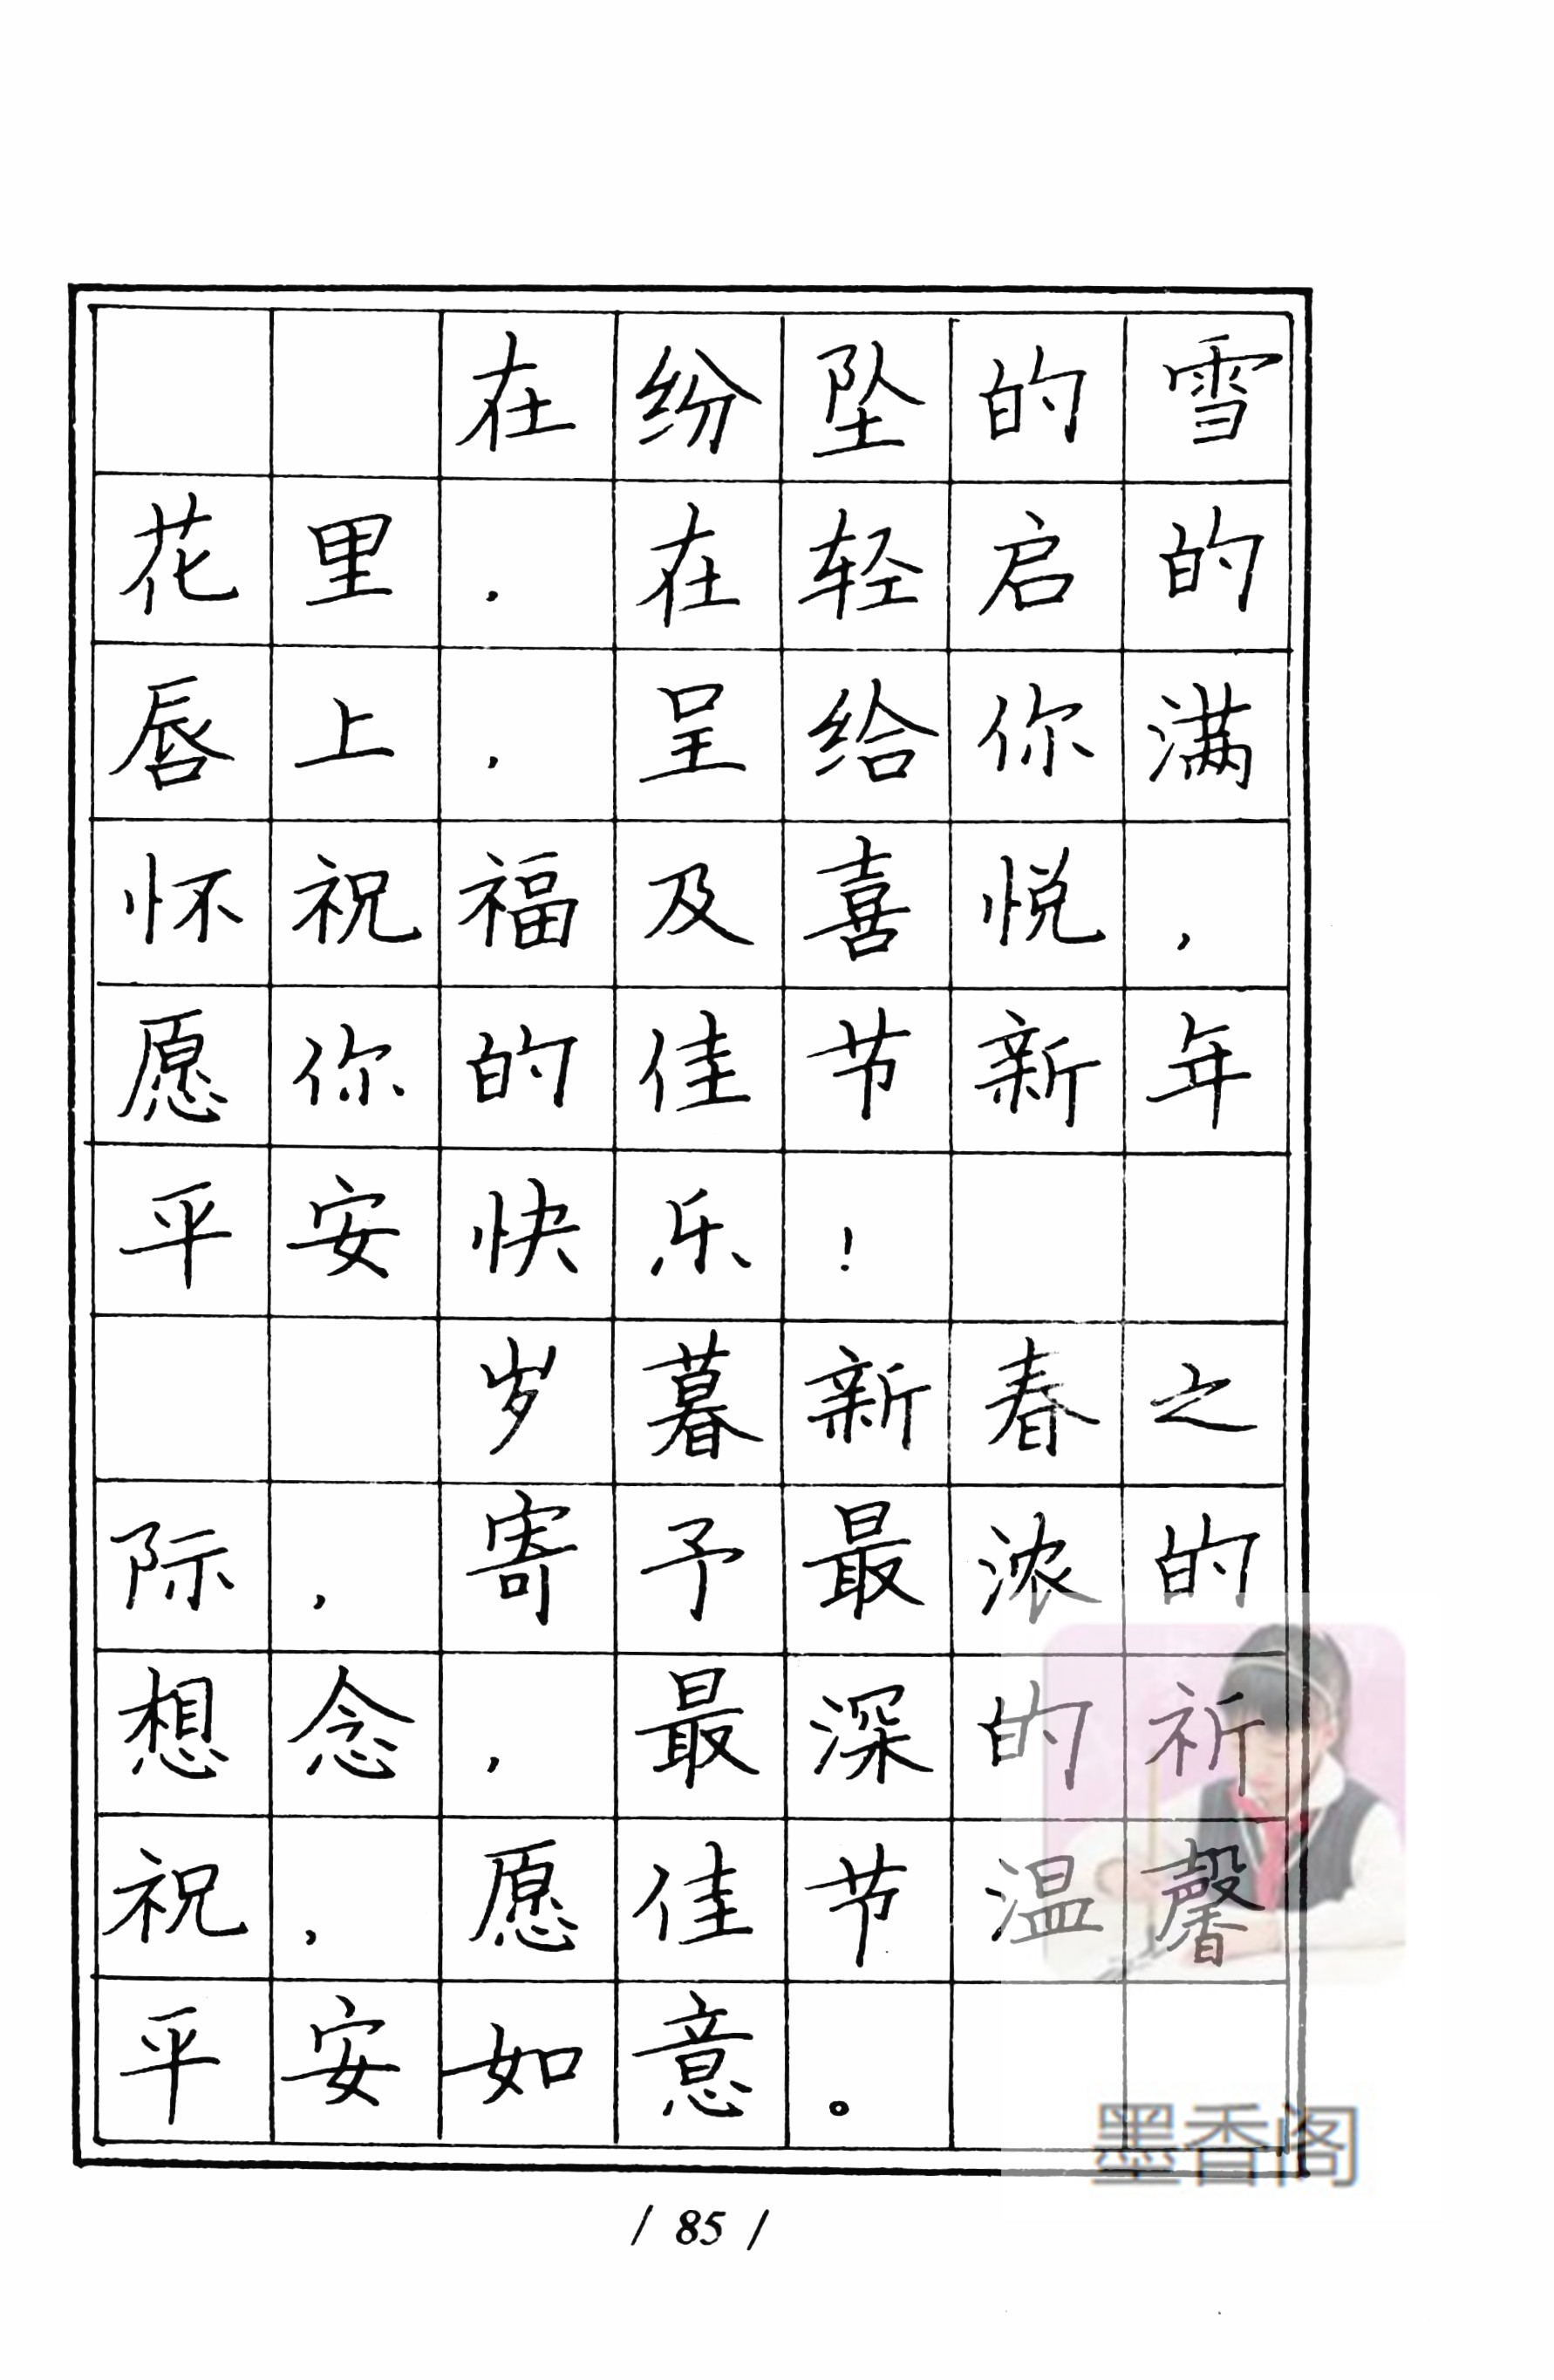 在纷坠的雪
花里，在轻启的
唇上，呈给你满
怀祝福及喜悦，
愿你的佳节新年
平安快乐！
岁暮新春之
际，寄予最浓的
想念，最深的祈
祝，愿佳节温馨
平安如意。
墨香阁
/ 85 /